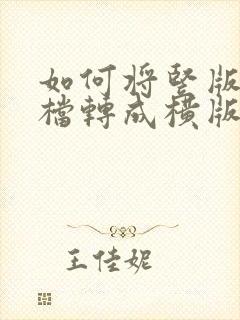 如何将竖版
檔轉成橫版
王佳妮